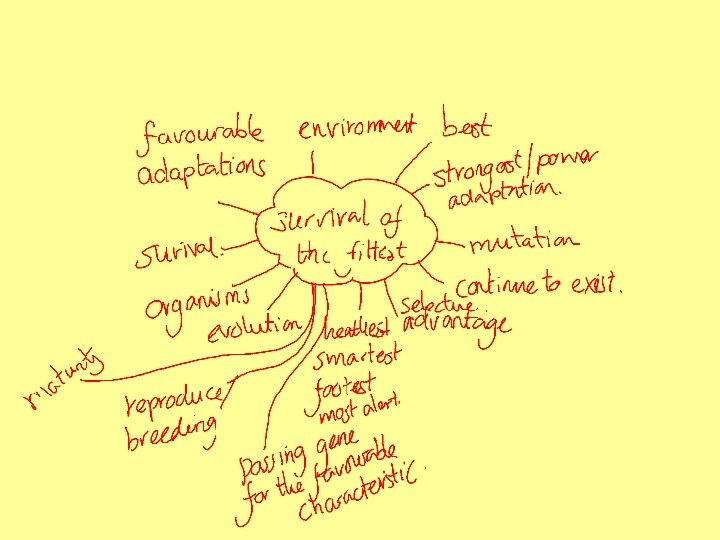 favourable
adaptations
enviroment
best
strongest/power
adaptation.
survival of
the fittest
surival
mutation
continue to exist.
organisms
evolution
selective
advantage
healthest
smartest
fastest
most alert.
maturity
reproduce/
breeding
passing gene
for the favourable
characteristic.